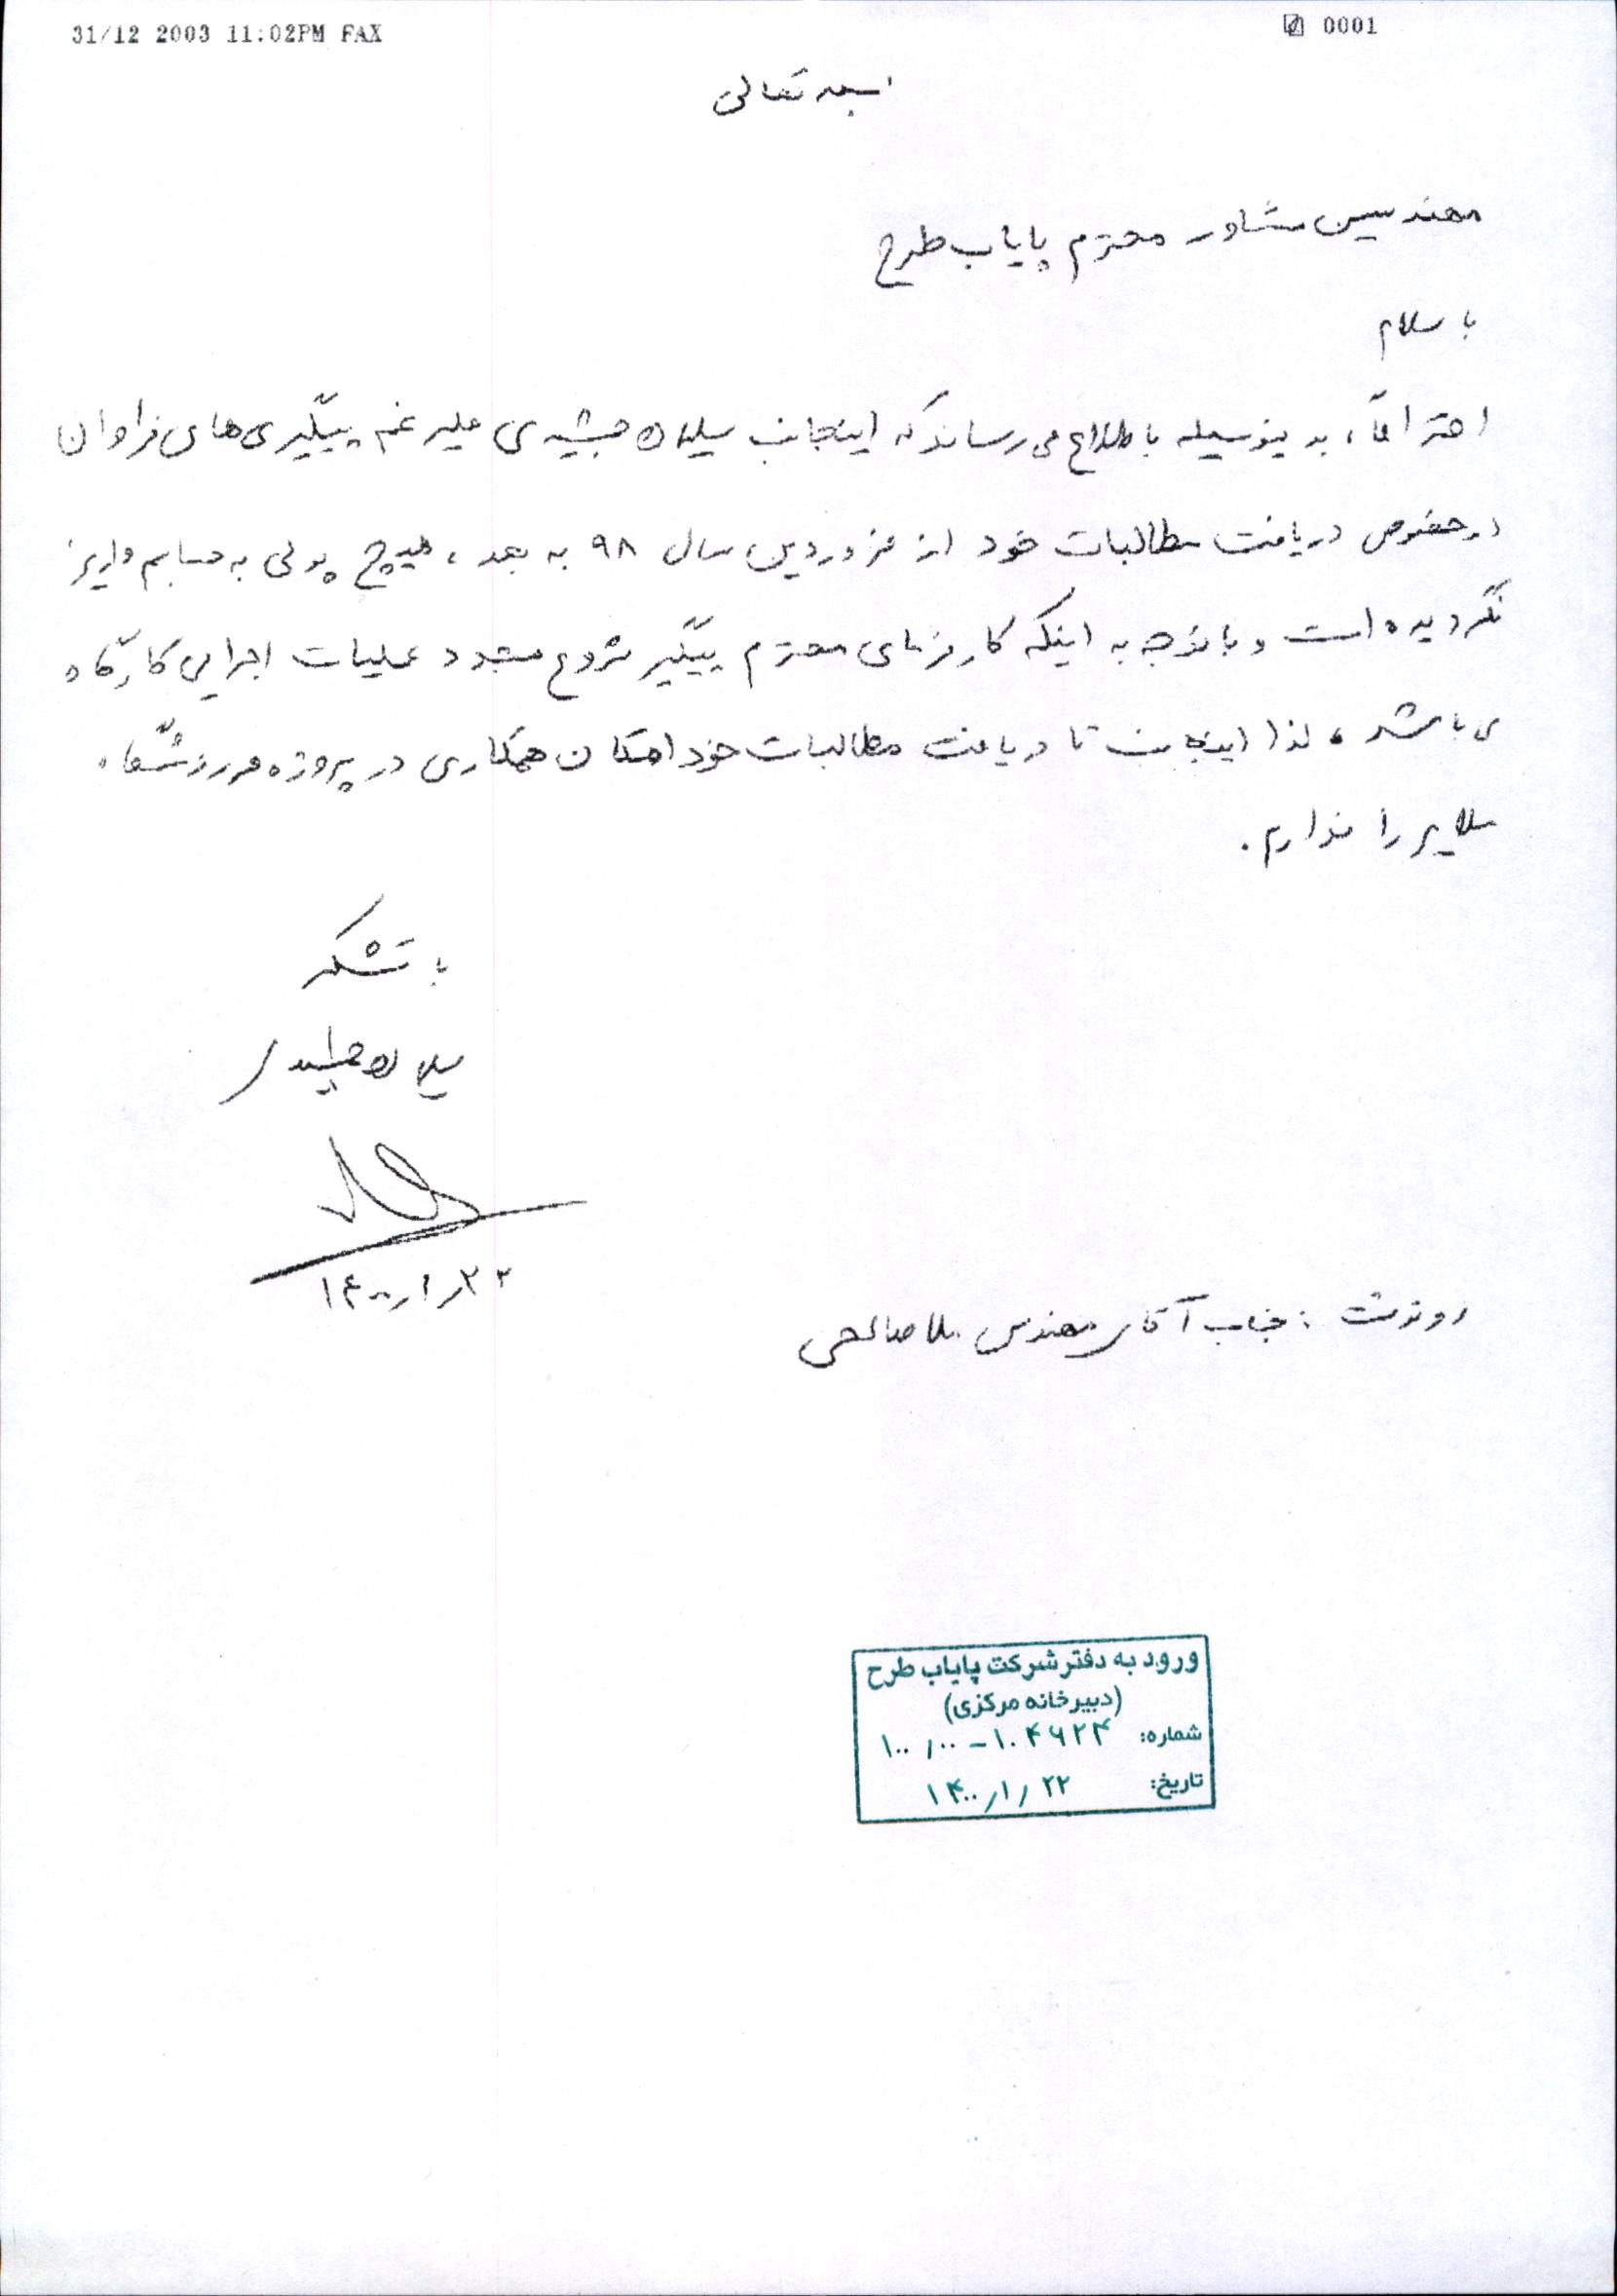 31/12 2003 11:02PM FAX
0001
بسمه تعالی
مهندسین مشاور محترم پایاب طرح
با سلام
احتراماً، بدینوسیله باطلاع می رساند که اینجانب سلیمان جمشیدی علیرغم پیگیری های فراوان
در خصوص دریافت مطالبات خود از فروردین سال ۹۸ به بعد، هیچ پولی به حسابم واریز
نگردیده است و با توجه به اینکه کارفرمای محترم پیگیر شروع مجدد عملیات اجرایی کارگاه
می باشد، لذا اینجانب تا دریافت مطالبات خود امکان همکاری در پروژه
ملایر را ندارم.
با تشکر
سلیمان جمشیدی
۱۴۰۰/۱/۲۲
رونوشت: جناب آقای مهندس ملاصالحی
ورود به دفتر شرکت پایاب طرح
(دبیرخانه مرکزی)
شماره: ۱۰۰/۰۰-۱۰۴۶۲۴
تاریخ: ۱۴۰۰/۱/۲۲